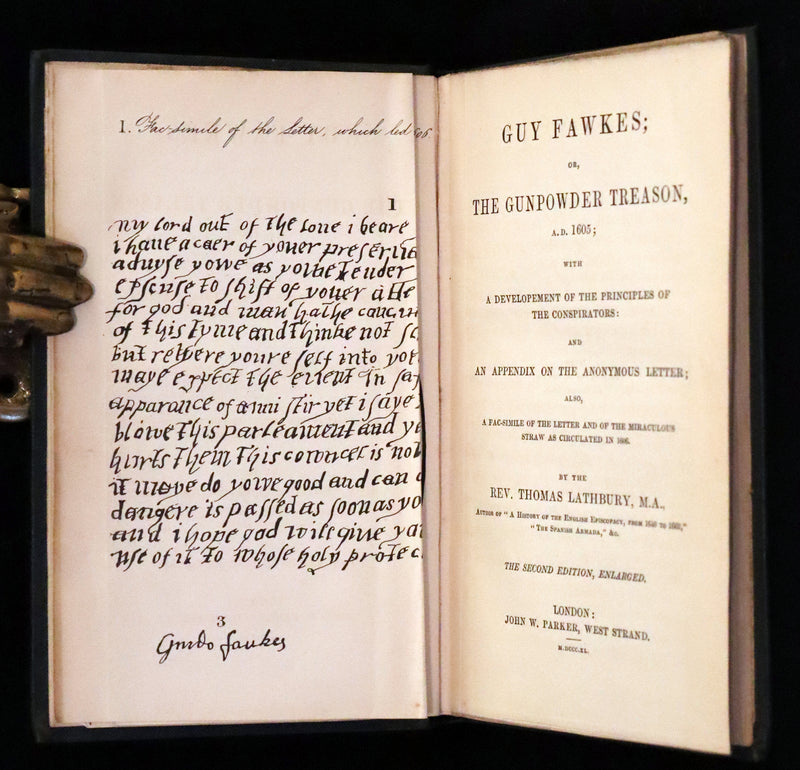 1. Fac-simile of the Letter, which led
1
my lord out of the loue i beare
i haue a caer of youer preserua
aduyse yowe as yowe tender
excuse to shift of youer atte
for god and man hathe concu
of this tyme and thinke not
but retyere youre self into
maye expect the euent in saf
apparance of anni stir yet i saye
blowe this parleament and ye
hurts them this cowncel is not
it maye do yowe good and can
dangere is passed as soon as yo
and i hope god will giue yo
use of it to whose holy protec
3
Guido fawkes
GUY FAWKES;
OR,
THE GUNPOWDER TREASON,
A.D. 1605;
WITH
A DEVELOPEMENT OF THE PRINCIPLES OF
THE CONSPIRATORS:
AND
AN APPENDIX ON THE ANONYMOUS LETTER;
ALSO,
A FAC-SIMILE OF THE LETTER AND OF THE MIRACULOUS
STRAW AS CIRCULATED IN 1606.
BY THE
REV. THOMAS LATHBURY, M.A.,
AUTHOR OF "A HISTORY OF THE ENGLISH EPISCOPACY, FROM 1640 TO 1662,"
"THE SPANISH ARMADA," &c.
THE SECOND EDITION, ENLARGED.
LONDON:
JOHN W. PARKER, WEST STRAND.
M.DCCC.XL.